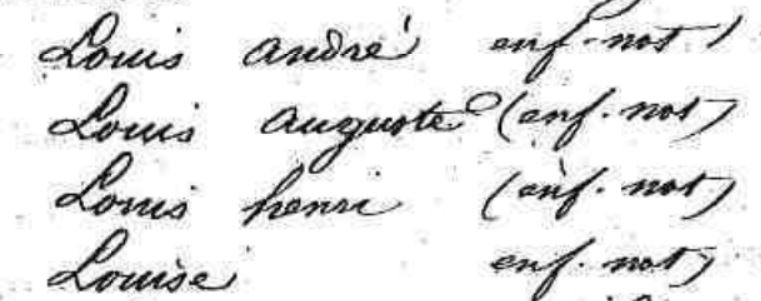 Louis andré enf. nat)
Louis auguste (enf. nat)
Louis henri (enf. nat)
Louise enf. nat)